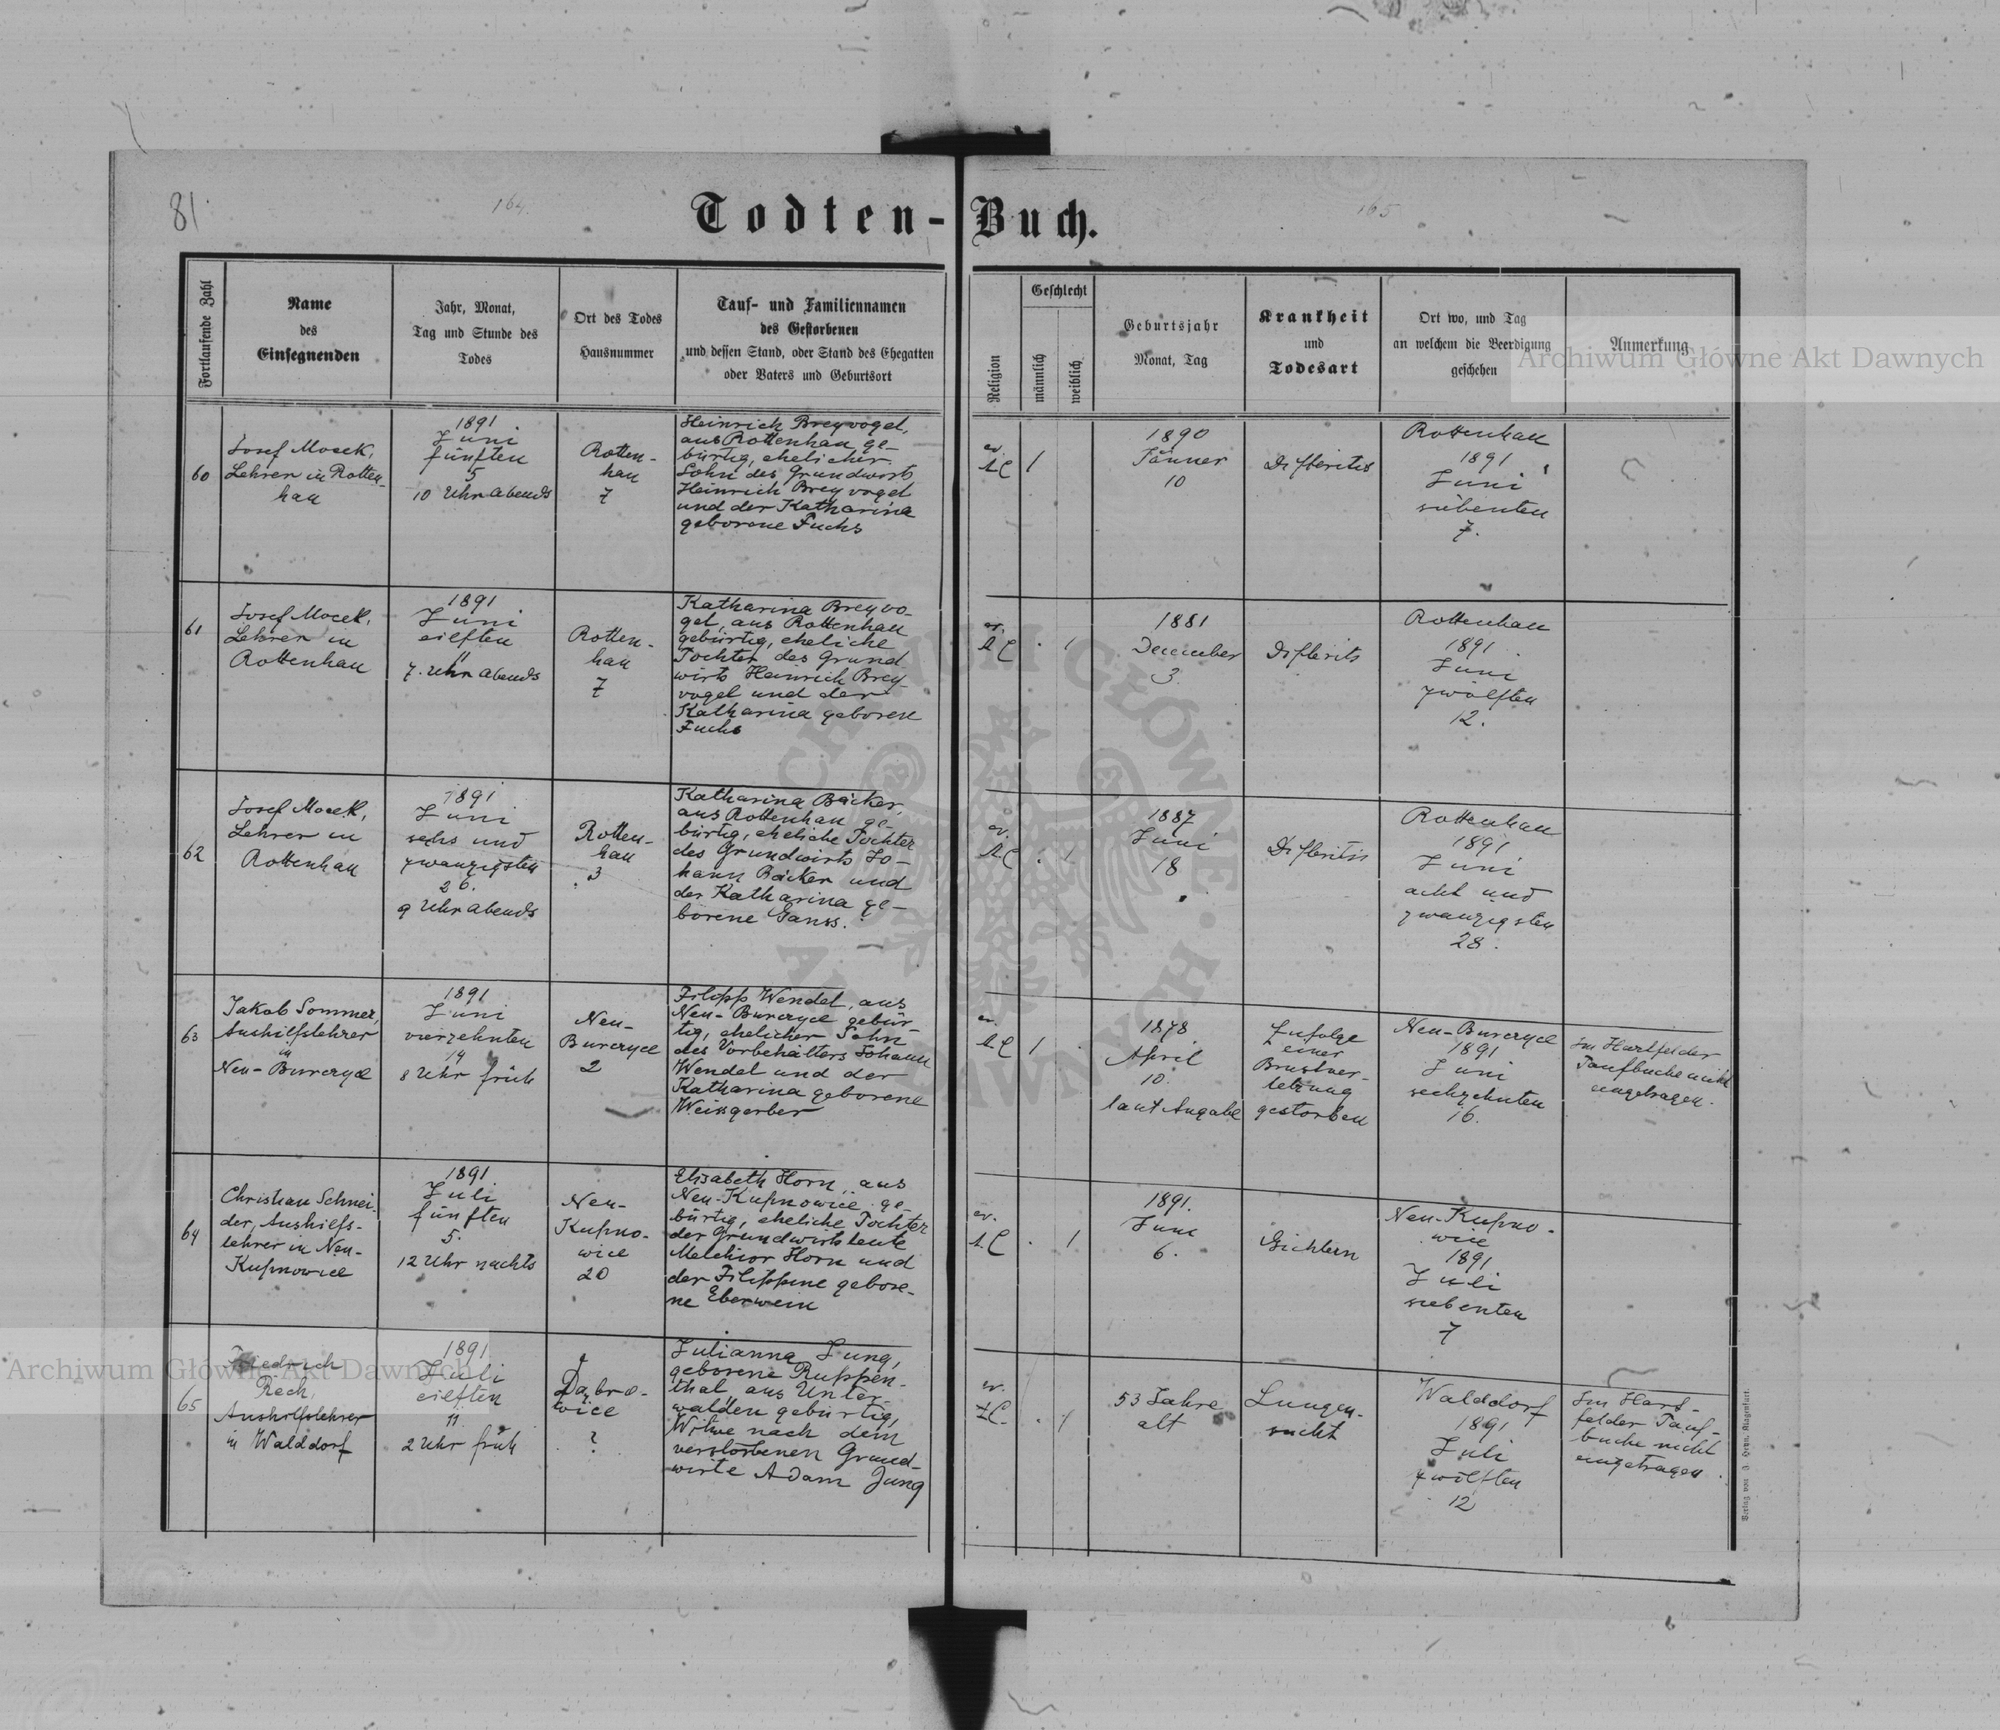 81
164.
165
Todten-Buch.
Fortlaufende Zahl
Name
des
Einsegnenden
Jahr, Monat,
Tag und Stunde des
Todes
Ort des Todes
Hausnummer
Tauf- und Familiennamen
des Gestorbenen
und dessen Stand, oder Stand des Ehegatten
oder Vaters und Geburtsort
Religion
Geschlecht
männlich
weiblich
Geburtsjahr
Monat, Tag
Krankheit
und
Todesart
Ort wo, und Tag
an welchem die Beerdigung
geschehen
Anmerkung
60
Josef Mocek,
Lehrer in Rotten-
hau
1891
Juni
fünften
5
10 Uhr abends
Rotten-
hau
7
Heinrich Breyvogel,
aus Rottenhau ge-
bürtig, ehelicher
Sohn des Grundwirts
Heinrich Breyvogel
und der Katharina
geborene Fuchs
ev.
A.C
1
1890
Jänner
10
Difteritis
Rottenhau
1891
Juni
siebenten
7.
61
Josef Mocek,
Lehrer in
Rottenhau
1891
Juni
eilften
11
7. Uhr abends
Rotten-
hau
7
Katharina Breyvo-
gel, aus Rottenhau
gebürtig, eheliche
Tochter des Grund-
wirts Heinrich Brey-
vogel und der
Katharina geboren
Fuchs
ev.
A.C
. 1
1881
December
3.
Difterits
Rottenhau
1891
Juni
zwölften
12.
62
Josef Mocek,
Lehrer in
Rottenhau
1891
Juni
sechs und
zwanzigsten
26.
9 Uhr abends
Rotten-
hau
3
Katharina Bäcker,
aus Rottenhau ge-
bürtig, eheliche Tochter
des Grundwirts Jo-
hann Bäcker und
der Katharina ge-
borene Ganss.
ev.
A.C
. 1
1887
Juni
18
Difteritis
Rottenhau
1891
Juni
acht und
zwanzigsten
28.
63
Jakob Sommer,
Aushilfslehrer
in
Neu-Burczyce
1891
Juni
vierzehnten
14
8 Uhr früh
Neu-
Burczyce
2
Filipp Wendel, aus
Neu-Burczyce gebür-
tig, ehelicher Sohn
des Vorbehälters Johann
Wendel und der
Katharina geborene
Weisgerber
ev.
A.C
1 .
1878.
April
10.
laut Angabe
Zufolge
einer
Brustver-
letzung
gestorben
Neu-Burczyce
1891
Juni
sechzehnten
16.
Im Hartfelder
Taufbuche nicht
eingetragen.
64
Christian Schnei-
der, Aushilfs-
lehrer in Neu-
Kupnowice
1891
Juli
fünften
5.
12 Uhr nachts
Neu-
Kupno-
wice
20
Elisabeth Horn, aus
Neu-Kupnowice ge-
bürtig, eheliche Tochter
der Grundwirtsleute
Melchior Horn und
der Filippine gebore-
ne Eberwein
ev.
A.C
. 1
1891.
Juni
6.
Gichtern
Neu-Kupno-
wice
1891
Juli
siebenten
7
65
Friedrich
Rech,
Aushilfslehrer
in Walddorf
1891
Juli
eilften
11.
2 Uhr früh
Dąbro-
wice
?
Julianna Jung,
geborene Ruppen-
thal, aus Unter-
walden gebürtig,
Witwe nach dem
verstorbenen Grund-
wirte Adam Jung
ev.
. 1
53 Jahre
alt
Lungen-
sucht
Walddorf
1891
Juli
zwölften
12
Im Hart-
felder Tauf-
buche nicht
eingetragen.
Verlag von J. Heyn, Klagenfurt.
Archiwum Główne Akt Dawnych
Archiwum Główne Akt Dawnych
ARCHIWUM GŁÓWNE · AKT DAWNYCH ·